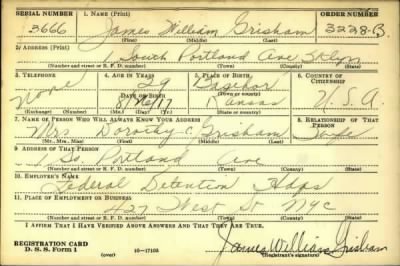 SERIAL NUMBER 1. NAME (Print) ORDER NUMBER
3666 James William Grisham 3228-B
(First) (Middle) (Last)
2. ADDRESS (Print)
South Portland Ave Bklyn
(Number and street or R. F. D. number) (Town) (County) (State)
3. TELEPHONE 4. AGE IN YEARS 5. PLACE OF BIRTH 6. COUNTRY OF CITIZENSHIP
29
DATE OF BIRTH
None Kansas U. S. A.
(Exchange) (Number) (Mo.) (Day) (Yr.) (State or country)
7. NAME OF PERSON WHO WILL ALWAYS KNOW YOUR ADDRESS 8. RELATIONSHIP OF THAT PERSON
Mrs Dorothy C. Grisham Wife
(Mr., Mrs., Miss) (First) (Middle) (Last)
9. ADDRESS OF THAT PERSON
So. Portland Ave
(Number and street or R. F. D. number) (Town) (County) (State)
10. EMPLOYER'S NAME
Federal Detention Hdqs
11. PLACE OF EMPLOYMENT OR BUSINESS
427 West St NYC
(Number and street or R. F. D. number) (Town) (County) (State)
I AFFIRM THAT I HAVE VERIFIED ABOVE ANSWERS AND THAT THEY ARE TRUE.
REGISTRATION CARD
D. S. S. Form 1 16-17105 James William Grisham
(Registrant's signature)